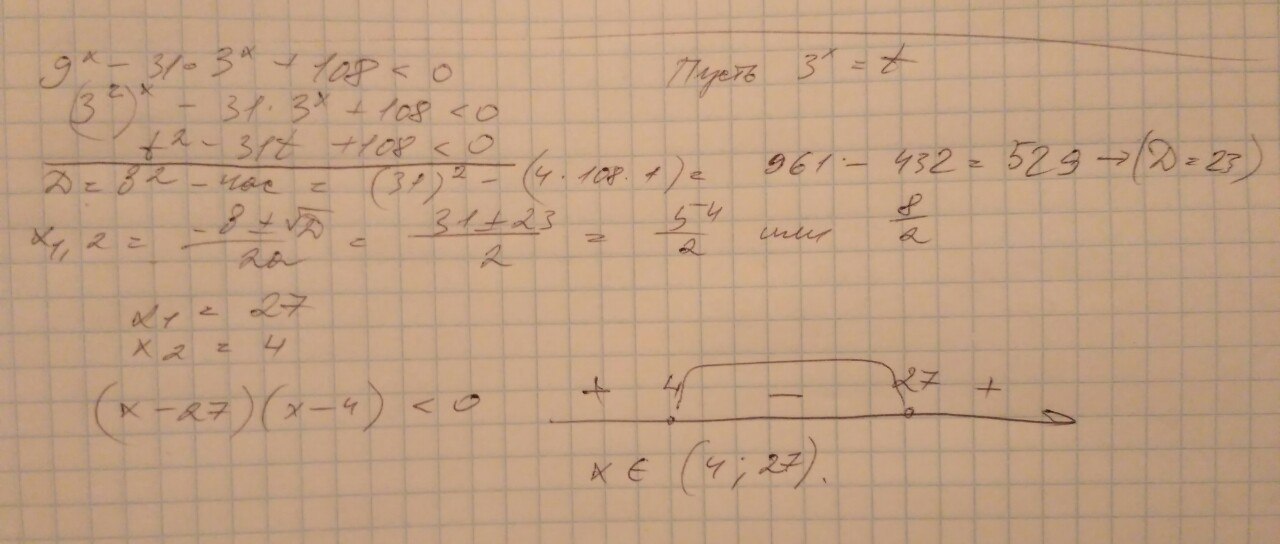 9^x - 31 · 3^x + 108 < 0 Пусть 3^x = t
(3^2)^x - 31 · 3^x + 108 < 0
t^2 - 31t + 108 < 0
D = в^2 - 4ac = (31)^2 - (4 · 108 · 1) = 961 - 432 = 529 → (D = 23)
x1,2 = (-в ± √D)/(2a) = (31 ± 23)/2 = 54/2 или 8/2
x1 = 27
x2 = 4
(x - 27)(x - 4) < 0
+ 4 - 27 +
x ∈ (4; 27).